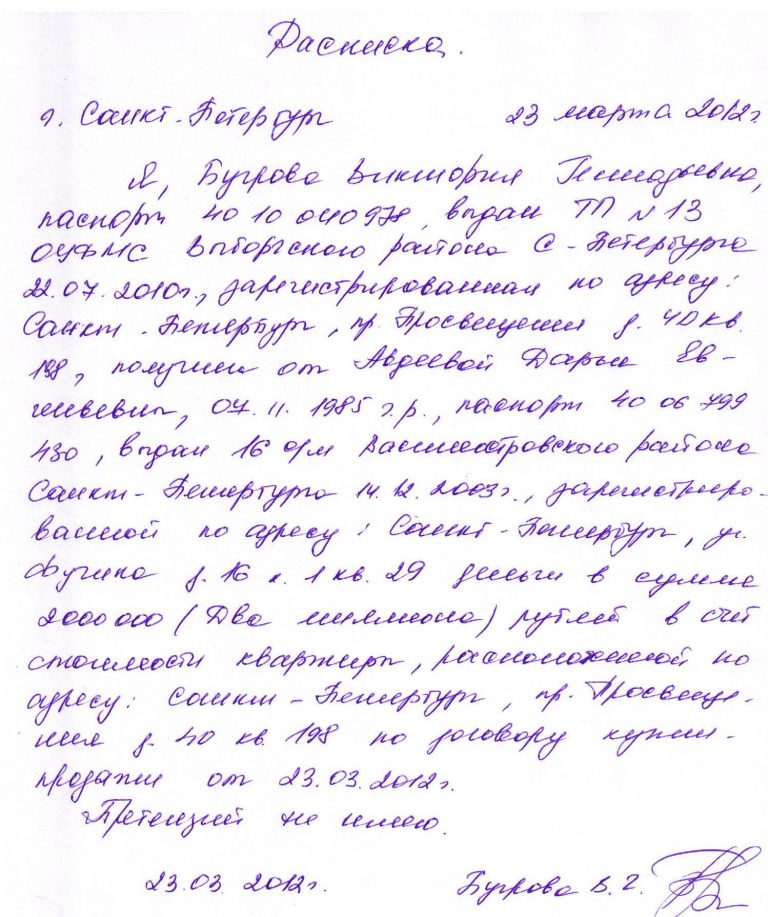 Расписка.
г. Санкт-Петербург 23 марта 2012г.
Я, Бугрова Виктория Геннадьевна,
паспорт 40 10 040978, выдан ТП № 13
ОУФМС Выборгского района С-Петербурга
22.07.2010г., зарегистрированная по адресу:
Санкт-Петербург, пр. Просвещения д. 40 кв.
198, получила от Авдеевой Дарьи Ев-
геньевны, 07.11.1985 г.р., паспорт 40 06 799
430, выдан 16 о/м Василеостровского района
Санкт-Петербурга 14.12.2003г., зарегистриро-
ванной по адресу: Санкт-Петербург, ул.
д. 16 к. 1 кв. 29 деньги в сумме
2000 000 (Два миллиона) рублей в счет
стоимости квартиры, расположенной по
адресу: Санкт-Петербург, пр. Просвеще-
ния д. 40 кв. 198 по договору купли-
продажи от 23.03.2012г.
Претензий не имею.
23.03.2012г. Бугрова В. Г.